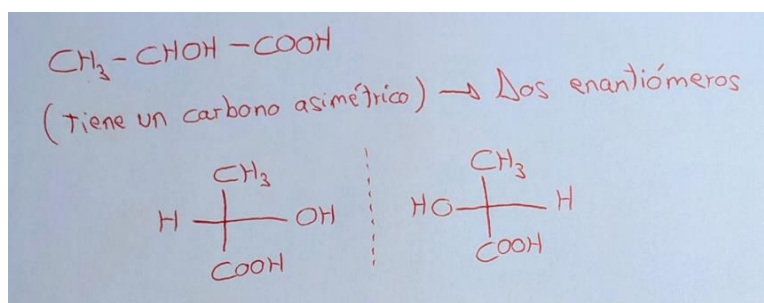 CH₃-CHOH-COOH
(tiene un carbono asimétrico) → Dos enantiómeros
CH₃ CH₃
H OH HO H
COOH COOH